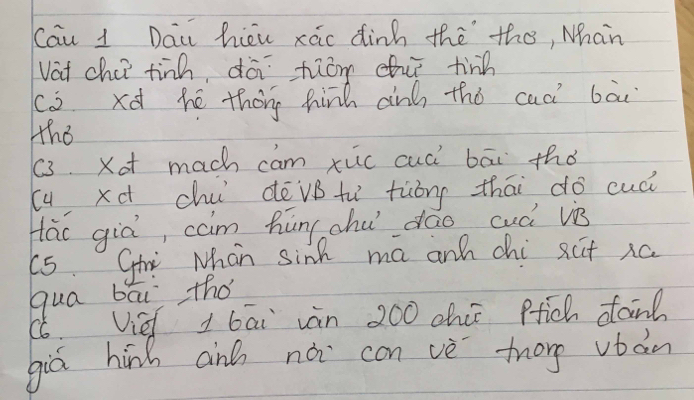 Câu 1 Dấu hiệu xác định thể thơ, Nhân
Vật chữ tình, đối tượng chữ tình
C2. Xđ hệ thống hình ảnh thơ của bài
thơ
C3. Xđ mạch cảm xúc của bài thơ
C4 xđ chủ đề VB tư tưởng thái độ của
tác giả, cảm hứng chủ đạo của VB
C5. Gtrị Nhân sinh mà anh chị rút ra
qua bài thơ
C6. Viết 1 bài văn 200 chữ Ptích đánh
giá hình ảnh nơi con về trong vbản